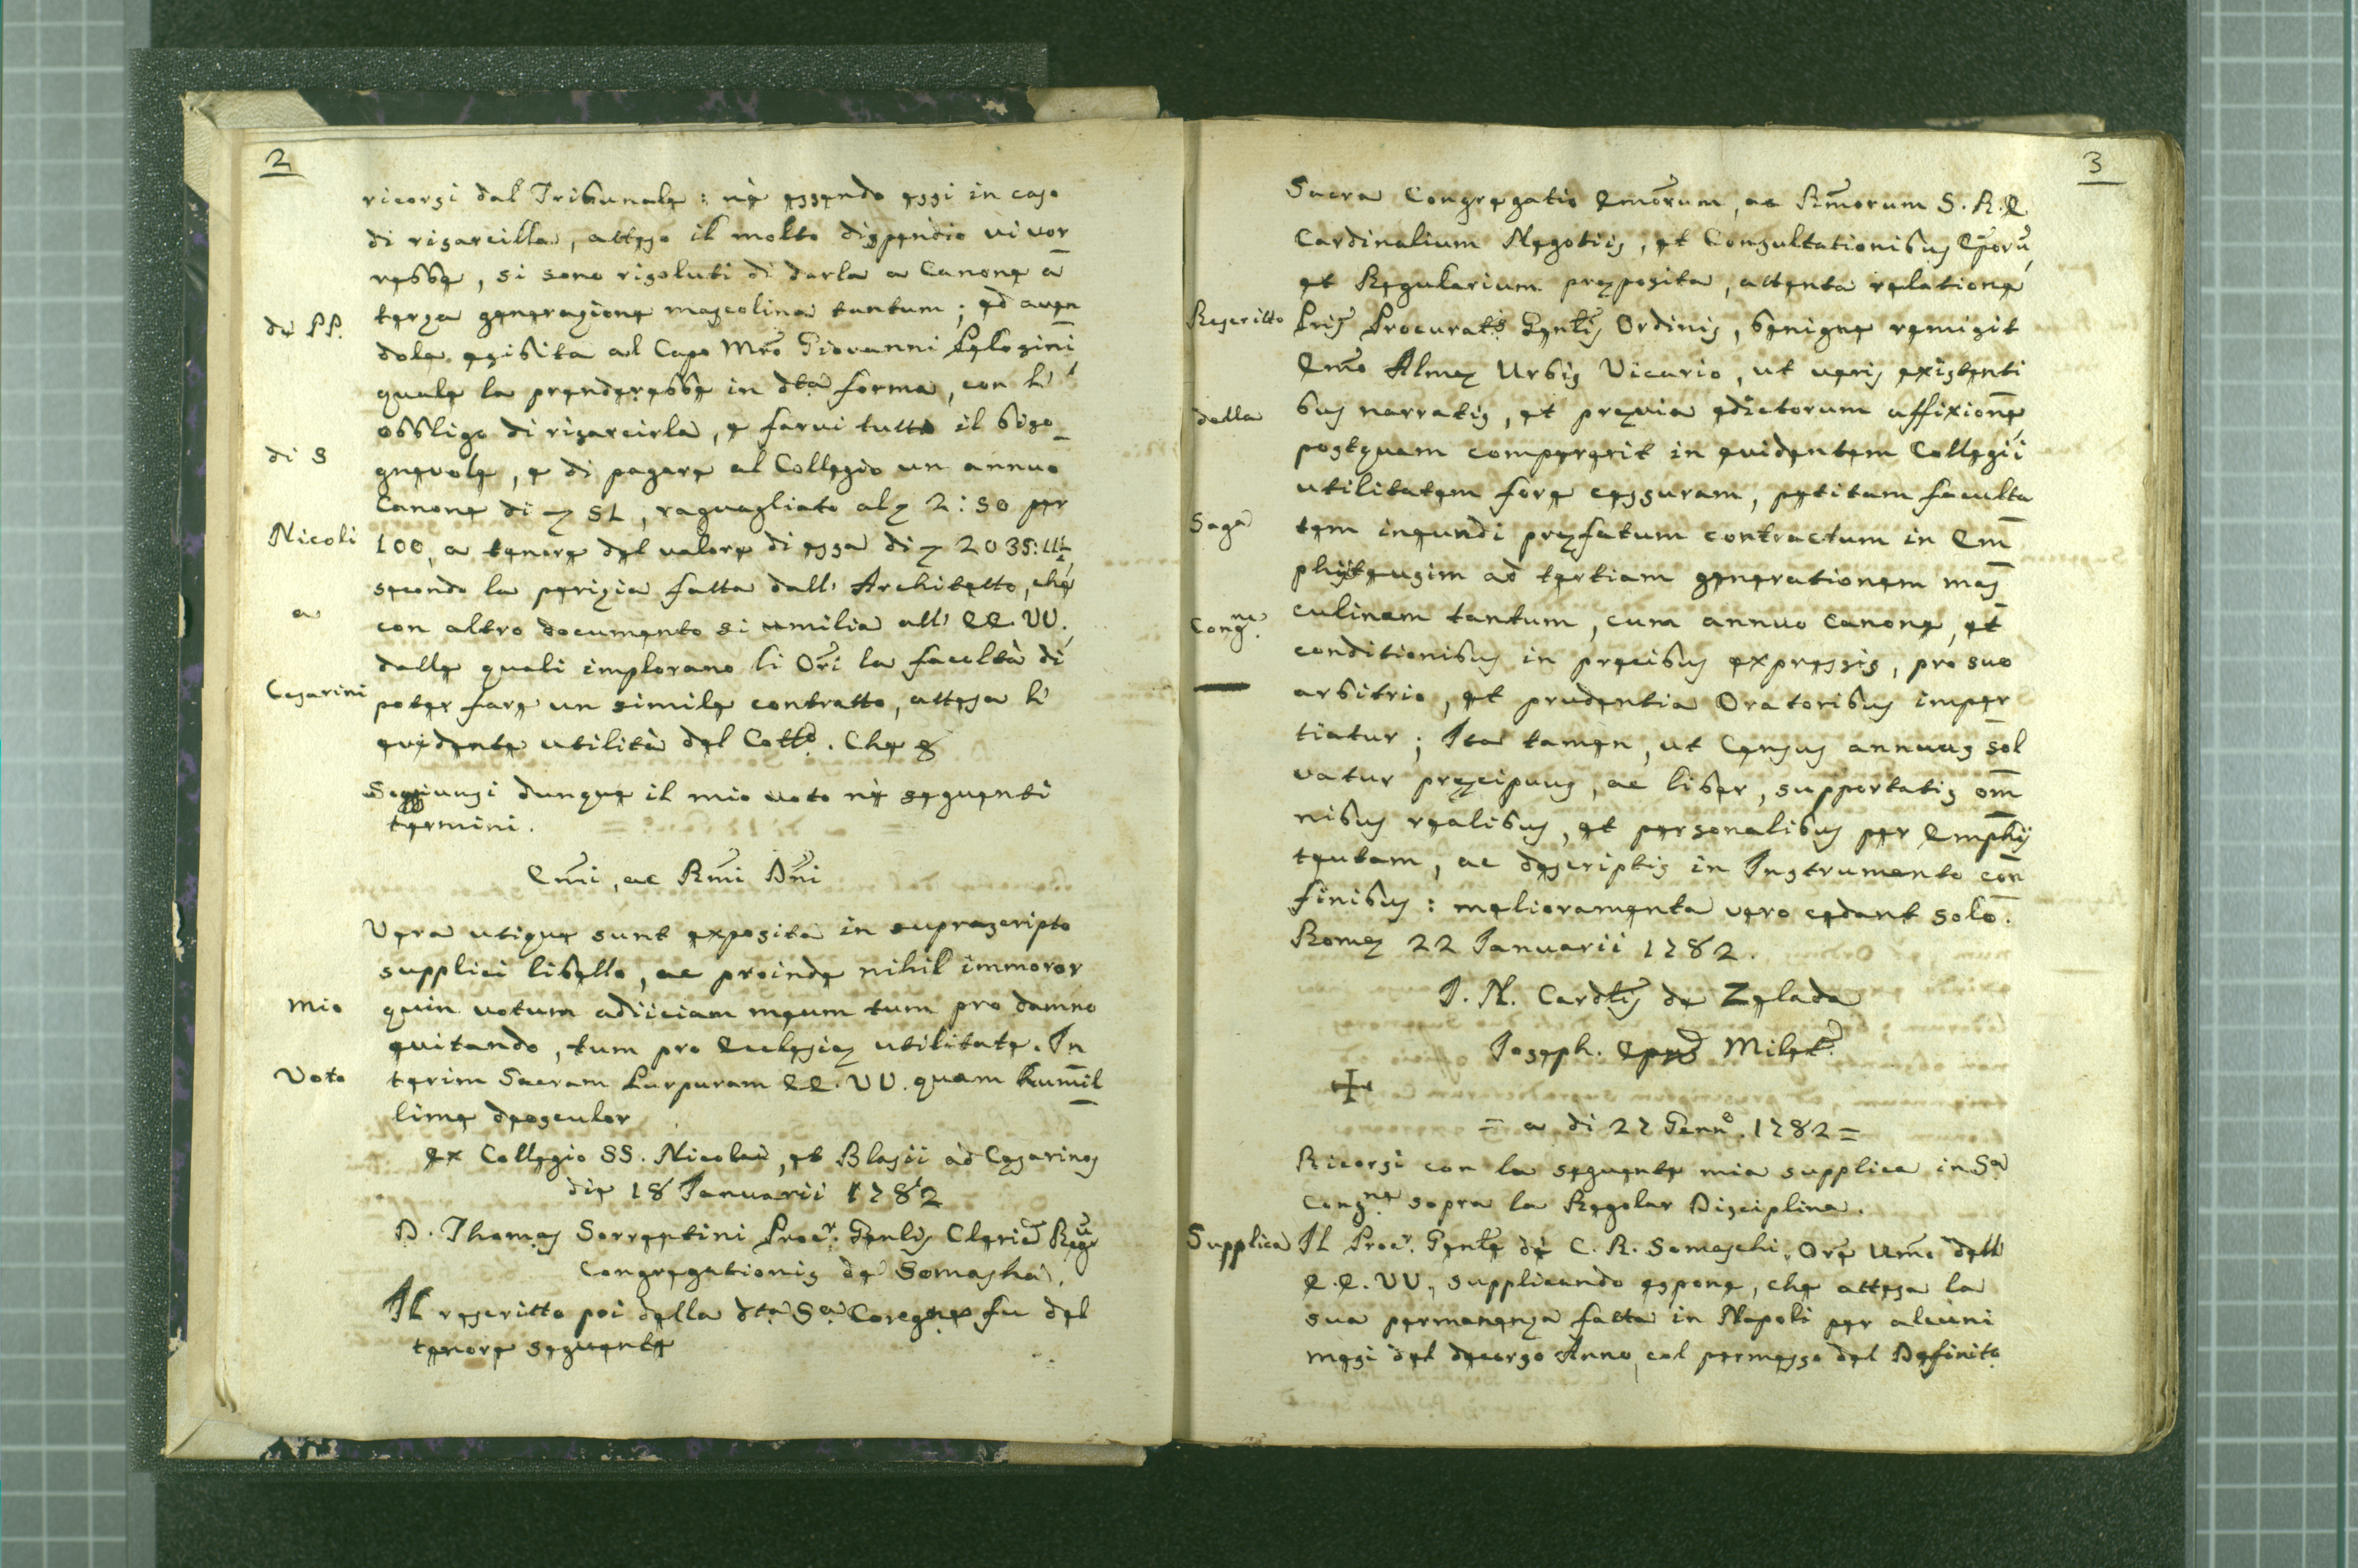 2
ricorsi dal Tribunale: nè essendo essi in caso
di risarcilla, atteso il molto dispendio vi vor
rebbe, si sono risoluti di darla a Canone a
terza generazione mascolina tantum; ed aven
de PP.
dola esibita al Capo Mrō Giovanni Pelosini
quale la prenderebbe in dta forma, con l'
obbligo di risarcirla, e farvi tutto il biso_
di S
gnevole, e di pagare al Collegio un annuo
Canone di 51, raguagliato al 2:50 per
Nicoli
100, a tenore del valore di essa di 2035:
secondo la perizia fatta dall' Architetto, che
a
con altro documento si umilia all' EE. VV.
dalle quali implorano li Orī la facoltà di
Cesarini
poter fare un simile contratto, attesa l'
evidente utilità del Collo. Che
Soggiunsi dunque il mio voto nè seguenti
termini.
Emī, ac Rmī Dnī
Vera utique sunt exposita in suprascripto
supplici libello, ac proinde nihil immoror
Mio
quin votum adiiciam meum tum pro damno
evitando, tum pro Ecclesiæ utilitate. In
Voto
terim Sacram Purpuram EE. VV. quam humil
lime deosculor
ex Collegio SS. Nicolai, et Blasii ad Cesarinos
die 18 Januarii 1782
D. Thomas Sorrentini Procr. Genlis Clericō Regū
Congregationis de Somasha.
Il rescritto poi della dta Sa Coregne fu del
tenore seguente
3
Sacra Congregatio Emōrum, ac Rmōrum S. R. E
Cardinalium Negotiis, et Consultationibus Epōrū,
et Regularium præposita, attenta relatione
Rescritto
Pris Procurats Genlis Ordinis, benigne remisit
Emō Almæ Urbis Vicario, ut veris existenti
della
bus narratis, et prævia edictorum affixione
postquam compererit in evidentem Collegii
utilitatem fore cessuram, petitam faculta
Saga
tem ineundi præfatum contractum in Em
phyteusim ad tertiam generationem mas
Congne.
culinam tantum, cum annuo Canone, et
conditionibus in precibus expressis, pro suo
arbitrio, et prudentia Oratoribus imper
tiatur; Ita tamen, ut Census annuus sol
vatur præcipuus, ac liber, supportatis om
nibus realibus, et personalibus per Emphy
teutam, ac descriptis in Instrumento con
finibus: melioramenta vero cedant solo.
Romæ 22 Januarii 1782.
Cardlis de Zelada
Joseph. Epus Milet.
= a di 27 Genno. 1782 =
Ricorsi con la seguente mia supplica in Sa
Congne sopra la Regolar Disciplina.
Supplica
Il Procr. Genle dè C. R. Somaschi, Orē Umō dell'
E. E. VV., supplicando espone, che attesa la
sua permanenza fatta in Napoli per alcuni
mesi del decorso Anno, col permesso del Definito